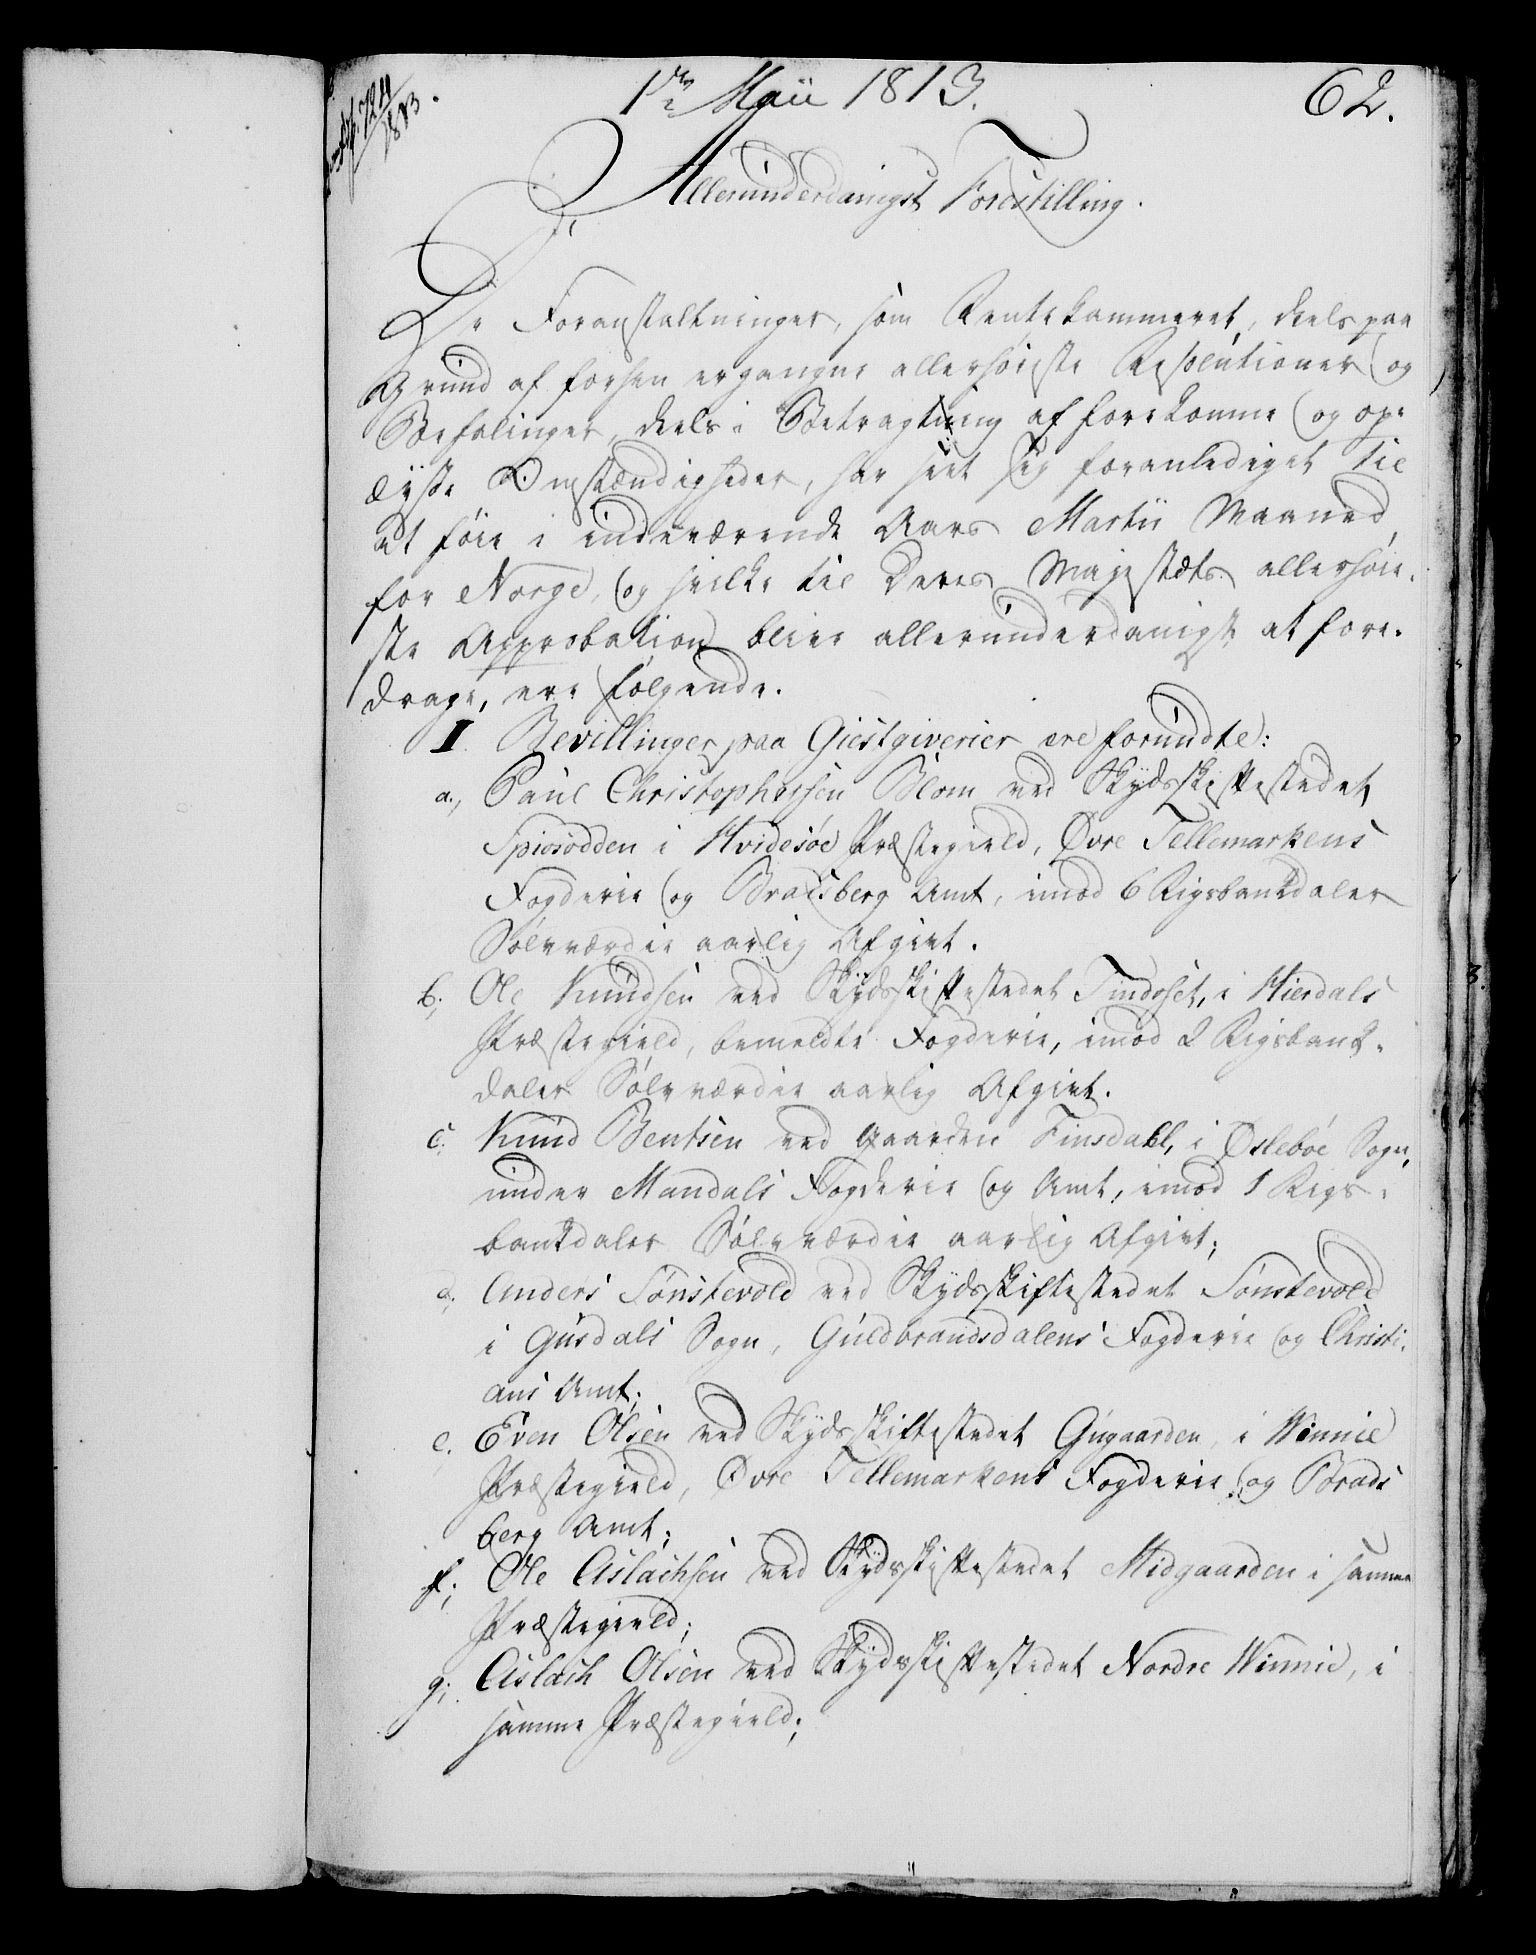 1ste Maii 1813.
62.
724
1813.
Allerunderdanigst Forestilling.
De Foranstaltninger, som Rentekammeret, deels paa
Grund af forhen ergangne allerhøieste Resolutioner og
Befalinger, deels i Betragtning af forekomne og op-
lyste Omstændigheder, har seet sig foranlediget til
at føie i indeværende Aars Martii Maaned
for Norge, og hvilke til Deres Majestæts allerhøie-
ste Approbation blive allerunderdanigst at fore-
drage, ere følgende.
I. Bevillinger paa Giestgiverier ere forundte:
a., Paul Christophersen Blom ved Skydsskiftestedet
Spiosodden i Hvidesøe Præstegield, Øvre Tellemarkens
Fogderie og Bradsberg Amt, imod 6 Rigsbankdaler
Sølvværdie aarlig Afgivt.
b; Ole Knudsen ved Skydsskiftestedet Tindoset, i Hierdals
Præstegield, bemeldte Fogderie, imod 2 Rigsbank-
daler Sølvværdie aarlig Afgivt.
c; Knud Bentsen ved Gaarden Finsdahl, i Øslebøe Sogn,
under Mandals Fogderie og Amt, imod 1 Rigs-
bankdaler Sølvværdie aarlig Afgivt;
d; Anders Tønstevold ved Skydsskiftestedet Tønstevold
i Gusdals Sogn, Guldbrandsdalens Fogderie og Christi-
ans Amt;
e. Even Olsen ved Skydsskiftestedet Gugaarden, i Winnie
Præstegield, Øvre Tellemarkens Fogderie og Brads
berg Amt;
f; Ole Aslachsen ved Skydsskiftestedet Midgaarden i samme
Præstegield;
g; Aslach Olsen ved Skydsskiftestedet Nordre Winnie, i
samme Præstegield;